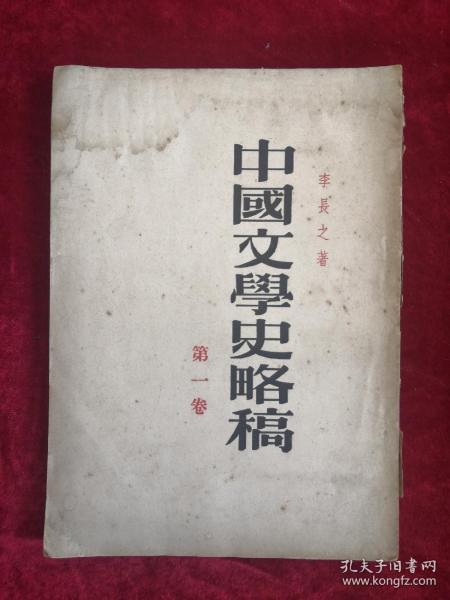 李長之著
中國文學史略稿
第一卷
孔夫子旧书网
www.kongfz.com